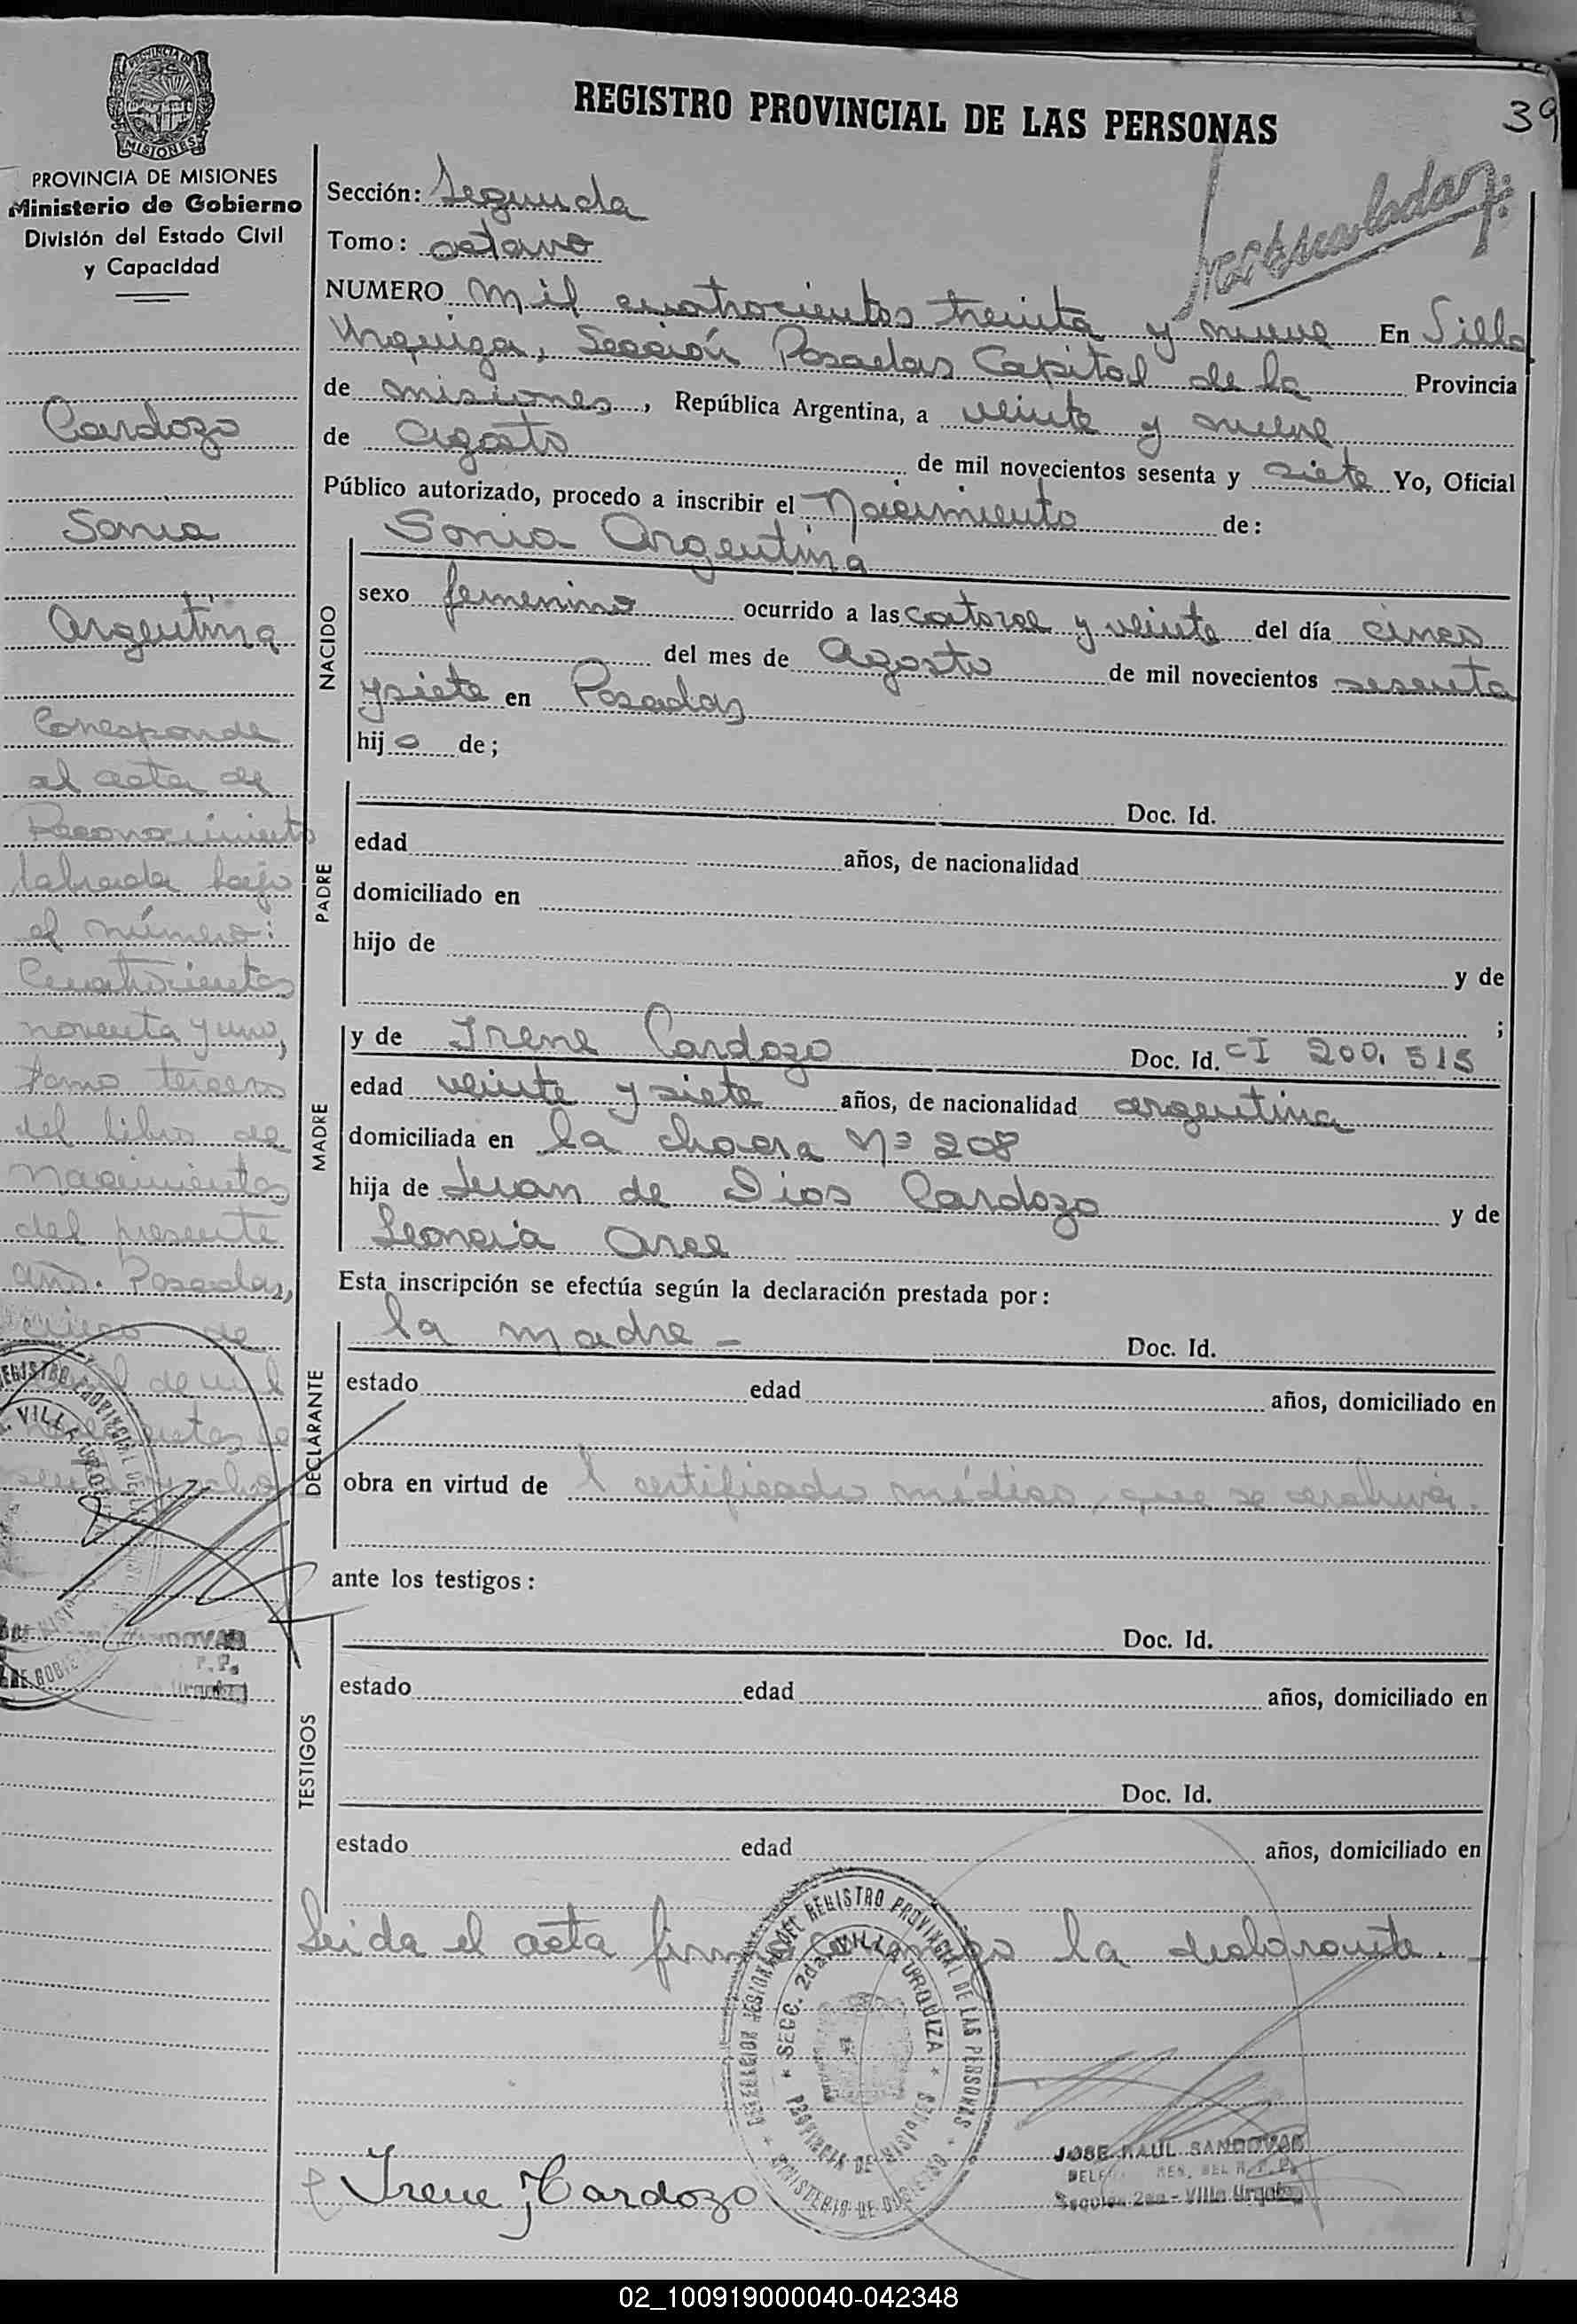 REGISTRO PROVINCIAL DE LAS PERSONAS
39
PROVINCIA DE MISIONES
MISIONES
PROVINCIA DE MISIONES
Ministerio de Gobierno
División del Estado Civil
y Capacidad
Cardozo
Sonia
Argentina
Corresponde
al acta de
Reconocimiento
labrada bajo
el número:
Cuatrocientos
noventa y uno,
tomo tercero
del libro de
Nacimientos
del presente
año. Posadas,
de
de mil
Sección: Segunda
Tomo: octavo
NUMERO mil cuatrocientos treinta y nueve En Villa
Urquiza, Sección Posadas Capital de la Provincia
de misiones, República Argentina, a veinte y nueve
de agosto de mil novecientos sesenta y siete Yo, Oficial
Público autorizado, procedo a inscribir el Nacimiento de:
NACIDO
Sonia Argentina
sexo femenino ocurrido a las catorce y veinte del día cinco
del mes de Agosto de mil novecientos sesenta
y siete en Posadas
hijo de;
PADRE
Doc. Id.
edad años, de nacionalidad
domiciliado en
hijo de y de
;
MADRE
y de Irene Cardozo Doc. Id. CI 200.515
edad veinte y siete años, de nacionalidad argentina
domiciliada en la chacra Nº 208
hija de Juan de Dios Cardozo y de
Leoncia Arce
Esta inscripción se efectúa según la declaración prestada por:
DECLARANTE
la madre - Doc. Id.
estado edad años, domiciliado en
obra en virtud de l certificado médico que se archiva.
ante los testigos:
TESTIGOS
Doc. Id.
estado edad años, domiciliado en
Doc. Id.
estado edad años, domiciliado en
Leida el acta firma conmigo la declarante.
REGISTRO PROVINCIAL DE LAS PERSONAS
SECC. 2da. VILLA URQUIZA
PROVINCIA DE MISIONES
MINISTERIO DE GOBIERNO
Irene Cardozo
JOSE RAUL SANDOVAL
Sección 2da - Villa Urquiza
02_100919000040-042348